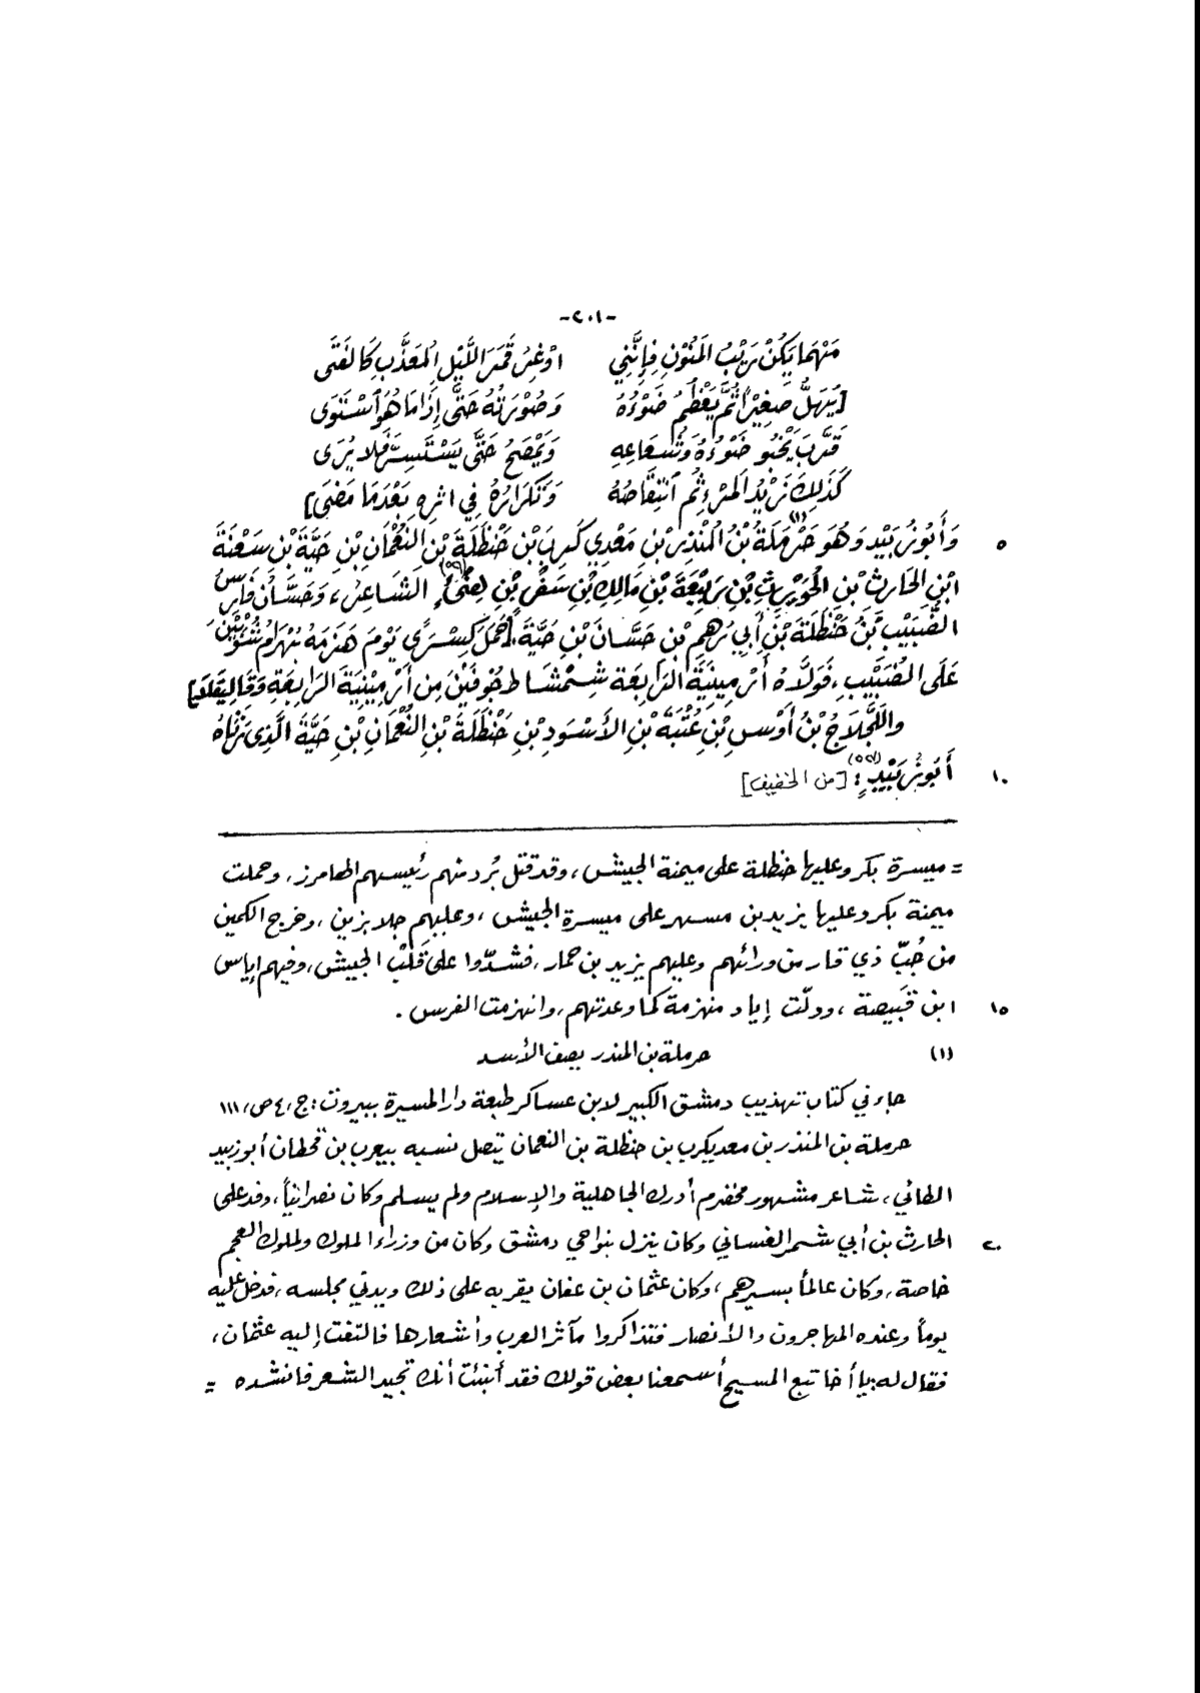 -٢٠١-
مَهْمَا يَكُنْ رَيْبُ المَنُوْنِ فِإِنَّنِي اوْ غِرُ قَمَرَ اللَّيْلِ المُعَذَّبِ كَالفَتَى
[يَهِلُّ صَغِيْرًا ثُمَّ يَعْظُمُ ضَوْءُهُ وَصُوْرَتُهُ حَتَّى إِذَا مَا هُوَ اسْتَوَى
وَقَرَّبَ يَخْبُو ضَوْءُهُ وَشُعَاعِهِ وَيَمْصَحُ حَتَّى يَسْتَسِرَّ فَلا يُرَى
كَذَلِكَ زَيْدُ المَرْءِ ثُم انتِقَاصُهُ وَتَكْرَارُهُ فِي اثْرِهِ بَعْدَمَا مَضَى]
٥ وَأَبُو زُبَيْد وَهُوَ حَرْمَلَةُ(١) بْنُ المُنْذِرِ بْنِ مَعْدِي كَرِبَ بْنِ حَنْظَلَةَ بْنِ النُّعْمَانِ بْنِ حَيَّةَ بْنِ سَعْنَةَ
ابْنِ الحَارِثِ بْنِ الحُوَيْرِثِ بْنِ رَبِيْعَةَ بْنِ مَالِكِ بْنِ سَفْرِ بْنِ هِنْىءٍ(٥٩) الشَاعِرُ، وَحَسَّانُ فَارِسُ
الضُّبَيْبِ بْنُ حَنْظَلَةَ بْنِ أَبِي رُهْمِ بْنِ حَسَّانَ بْنِ حَيَّةَ. [حَمَلَ كِسْرَى يَوْمَ هَزَمَهُ بَهْرَامُ شُوْبِيْنَ
عَلَى الضُّبَيْبِ، فَوَلَّاهُ أَرْمِينِيَةَ الرَابِعَة شِمْشَاط حُوفَيْنَ مِن أَرْمِيْنِيَةَ الرَابِعَةِ وَقَالِيقَلَا]
واللَّجْلَاجُ بْنُ أَوْسِ بْنِ عُتْبَةَ بْنِ الأَسْوَدِ بْنِ حَنْظَلَةَ بْنِ النُّعْمَانِ بْنِ حَيَّةَ الَّذِي رَثَاهُ
١٠ أَبُو زُبَيْدٍ: [من الخفيف]
= ميسرة بكر وعليها حنظلة على ميمنة الجيش، وقد قتل بُرد منهم رئيسهم الهامرز، وحملت
ميمنة بكر وعليها يزيد بن مسهر على ميسرة الجيش، وعليهم جلابزين، وخرج الكمين
من جُبّ ذي قار من ورائهم وعليهم يزيد بن حمار، فشدّوا على قَلْبْ الجيش، وفيهم إياس
١٥ ابن قَبيصة، وولّت إياد منهزمة كما وعدتهم، وانهزمت الفرس.
(١) حرملة بن المنذر يصف الأسد
جاء في كتاب تهذيب دمشق الكبير لابن عساكر طبعة دار المسيرة ببيروت: ج، ٤ ص، ١١١
حرملة بن المنذر بن معديكرب بن حنظلة بن النعمان يتصل نسبه بيعرب بن قحطان أبو زبيد
الطائي، شاعر مشهور مخضرم أدرك الجاهلية والإسلام ولم يسلم وكان نصرانياً، وفد على
٢٠ الحارث بن أبي شمر الغساني وكان ينزل بنواحي دمشق وكان من وزراء الملوك ولملوك العجم
خاصة، وكان عالماً بسيرهم، وكان عثمان بن عفان يقربه على ذلك ويدني مجلسه، فدخل عليه
يوماً وعنده المهاجرون والأنصار فتذاكروا مآثر العرب وأشعارها فالتفت إليه عثمان،
فقال له: يا أخا تبع المسيح أسمعنا بعض قولك فقد أنبئت أنك تجيد الشعر فانشده =